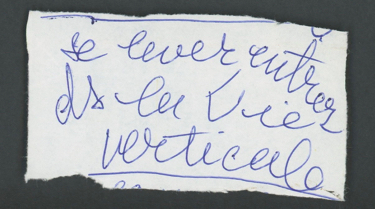 se lever entrer
ds la vie
verticale